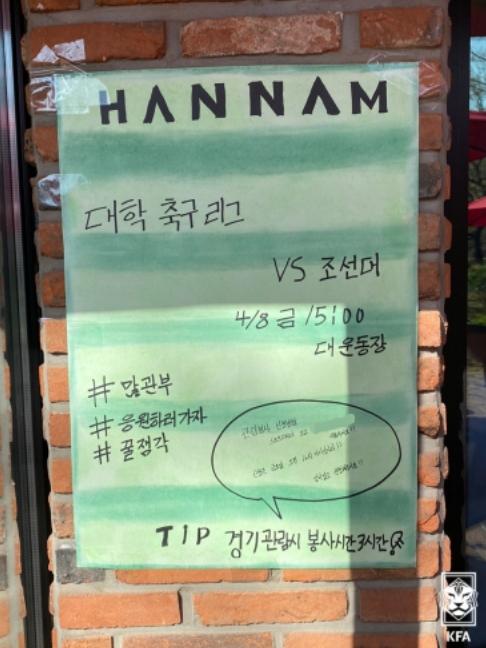 HANNAM
대학 축구 리그
VS 조선대
4/8 금 15:00
대운동장
# 많관부
# 응원하러가자
# 꿀잼각
TIP 경기관람시 봉사시간 3시간
KFA